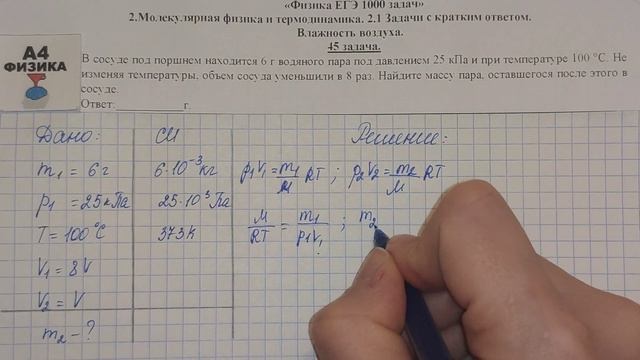 «Физика ЕГЭ 1000 задач»
2.Молекулярная физика и термодинамика. 2.1 Задачи с кратким ответом.
Влажность воздуха.
45 задача.
А4
ФИЗИКА
В сосуде под поршнем находится 6 г водяного пара под давлением 25 кПа и при температуре 100 °С. Не
изменяя температуры, объем сосуда уменьшили в 8 раз. Найдите массу пара, оставшегося после этого в
сосуде.
Ответ:____________ г.
Дано: СИ Решение:
m₁ = 6 г 6·10⁻³кг p₁V₁ = m₁/M RT ; p₂V₂ = m₂/M RT
p₁ = 25 кПа 25·10³Па
T = 100°C 373 K M/RT = m₁/p₁V₁ ; m₂
V₁ = 8V
V₂ = V
m₂ - ?